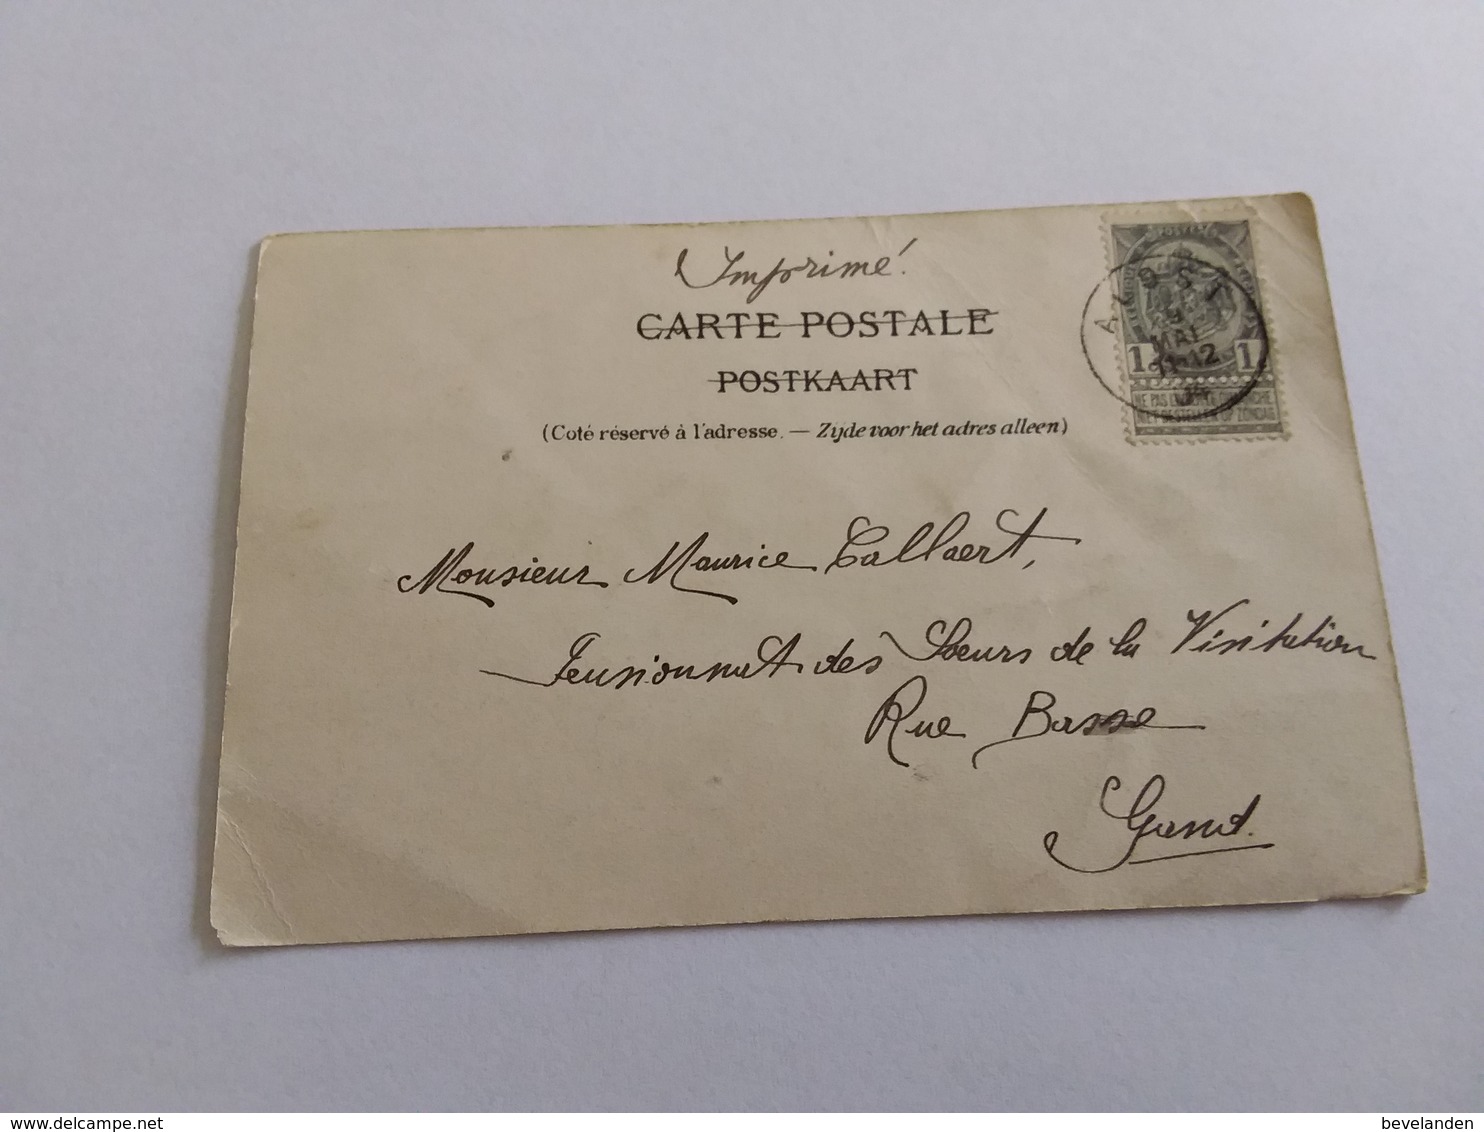 Imprimé.
CARTE POSTALE
POSTKAART
(Coté réservé à l'adresse. — Zijde voor het adres alleen)
POSTES
ALOST
9
MAI
11-12
1 1
NE PAS LIVRER LE DIMANCHE
NIET BESTELLEN OP ZONDAG
Monsieur Maurice Callaert,
Pensionnat des Sœurs de la Visitation
Rue Basse
Gand.
delcampe.net
bevelanden